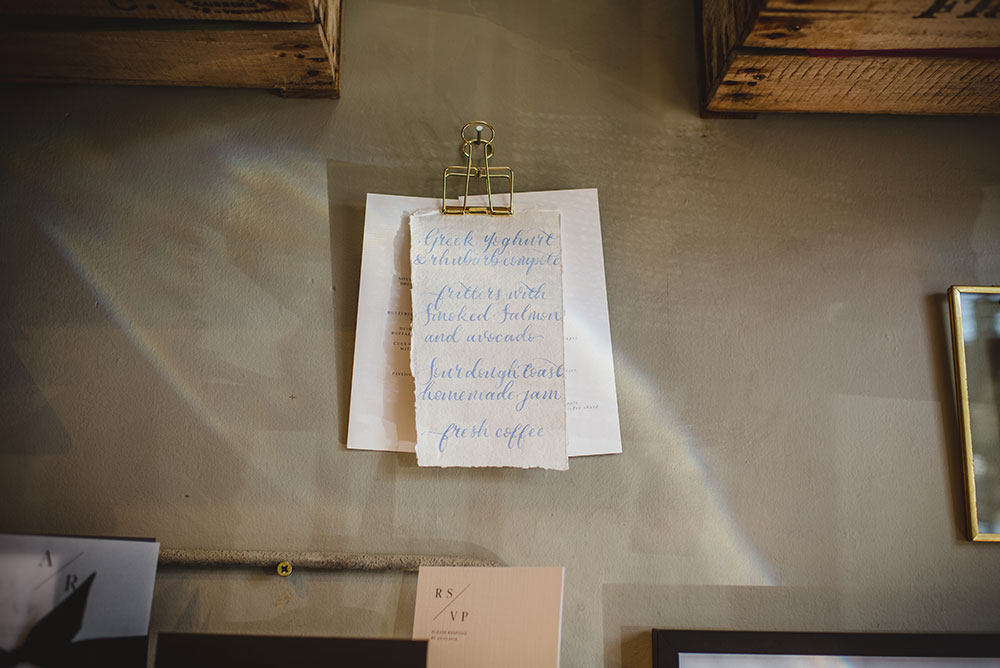 Greek Yoghurt
& rhubarb compote
fritters with
Smoked Salmon
and avocado
Sourdough toast
homemade jam
fresh coffee
A
R
RS
VP
PLEASE RESPOND